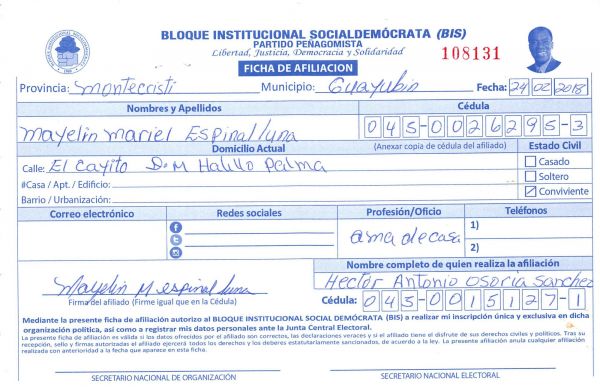 BLOQUE INSTITUCIONAL SOCIALDEMÓCRATA (BIS)
PARTIDO PEÑAGOMISTA
Libertad, Justicia, Democracia y Solidaridad
108131
FICHA DE AFILIACION
Provincia: Montecristi Municipio: Guayubin Fecha: 24 02 2018
Nombres y Apellidos Cédula
Mayelin Mariel Espinal luna 045-0026295-3
Domicilio Actual (Anexar copia de cédula del afiliado) Estado Civil
Calle: El Cayito D.M Hatillo Palma
Casado
#Casa / Apt. / Edificio: Soltero
Barrio / Urbanización: Conviviente
Correo electrónico Redes sociales Profesión/Oficio Teléfonos
ama de casa
1)
2)
Nombre completo de quien realiza la afiliación
Mayelin M espinal luna Hector Antonio Osoria Sanchez
Firma del afiliado (Firme igual que en la Cédula) Cédula: 045-0015127-1
Mediante la presente ficha de afiliación autorizo al BLOQUE INSTITUCIONAL SOCIAL DEMÓCRATA (BIS) a realizar mi inscripción única y exclusiva en dicha
organización política, así como a registrar mis datos personales ante la Junta Central Electoral.
La presente ficha de afiliación es válida si los datos ofrecidos por el afiliado son correctos, las declaraciones veraces y si el afiliado tiene el disfrute de sus derechos civiles y políticos. Tras su
recepción, sello y firmas autorizadas el afiliado ejercerá todos los derechos y los deberes estatutariamente sancionados, de acuerdo a la ley. La presente afiliación anula cualquier afiliación
realizada con anterioridad a la fecha que aparece en esta ficha.
SECRETARIO NACIONAL DE ORGANIZACIÓN SECRETARIO NACIONAL ELECTORAL